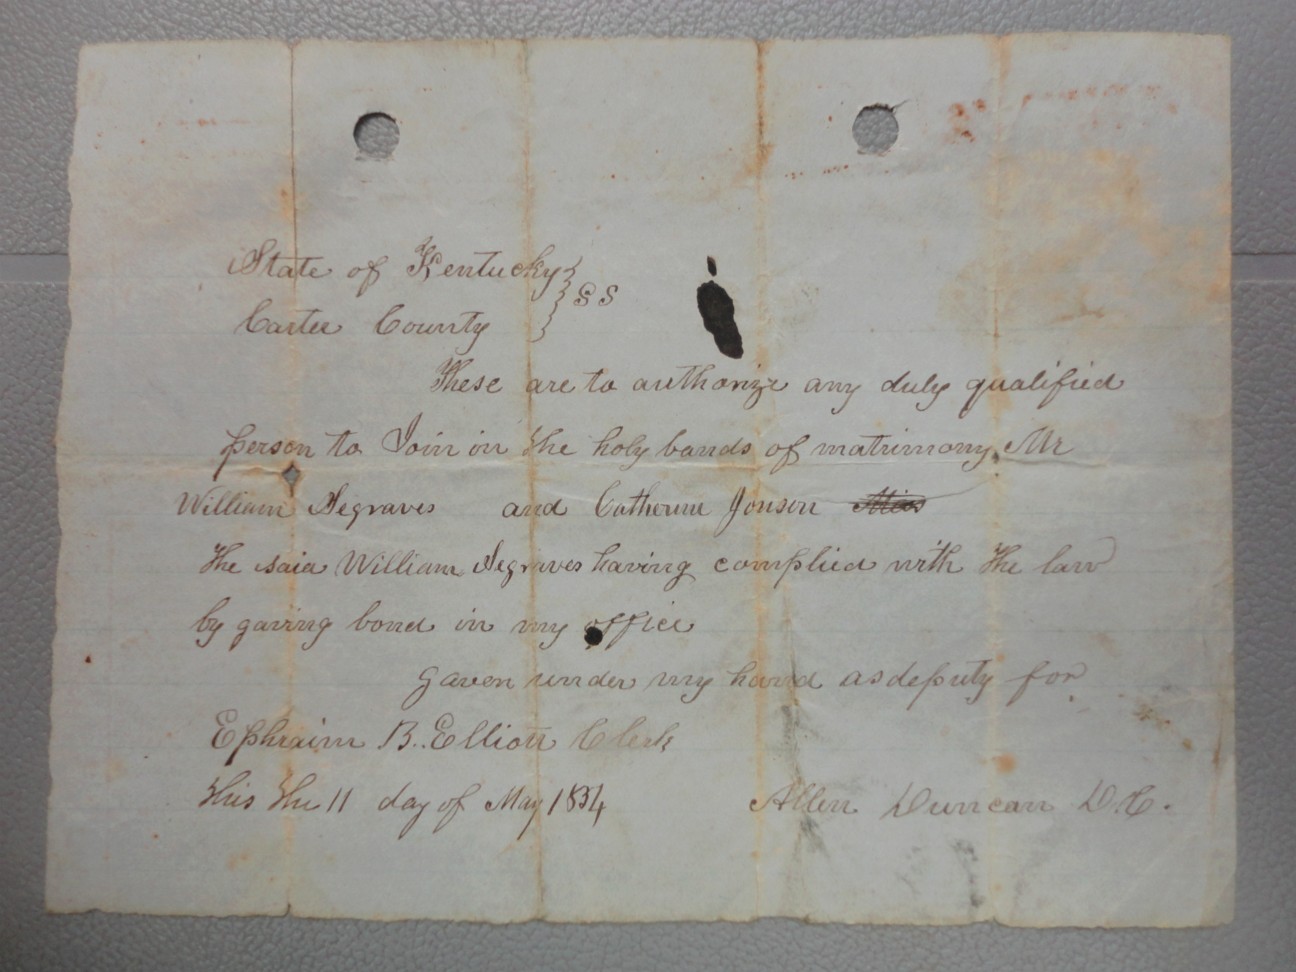 State of Kentucky } SS
Carter County
These are to authorize any duly qualified
person to Join in the holy bands of matrimony Mr
William Segraves and Catherine Jonson
the said William Segraves having complied with the law
by gaving bond in my office
gaven under my hand as deputy for
Ephraim B. Elliott Clerk
this the 11 day of May 1854 Allen Duncan D.C.